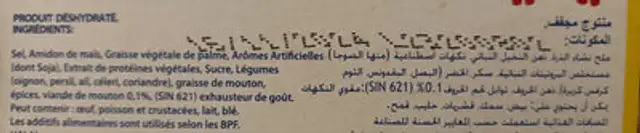 PRODUIT DÉSHYDRATÉ.
INGRÉDIENTS:
Sel, Amidon de maïs, Graisse végétale de palme, Arômes Artificielles
(dont Soja), Extrait de protéines végétales, Sucre, Légumes
(oignon, persil, ail, céleri, coriandre), graisse de mouton,
épices, viande de mouton 0,1%, (SIN 621) exhausteur de goût.
Peut contenir : œuf, poisson et crustacées, lait, blé.
Les additifs alimentaires sont utilisés selon les BPF.
منتوج مجفف.
المكونات:
ملح نشاء الذرة، دهن النخيل النباتي، نكهات اصطناعية (منها الصوجا)
مستخلص البروتينات النباتية، سكر، الخضر (البصل، البقدونس، الثوم
0.1% (SIN 621) مقوي النكهات
يمكن أن يحتوي على: بيض، سمك، قشريات، حليب، قمح.